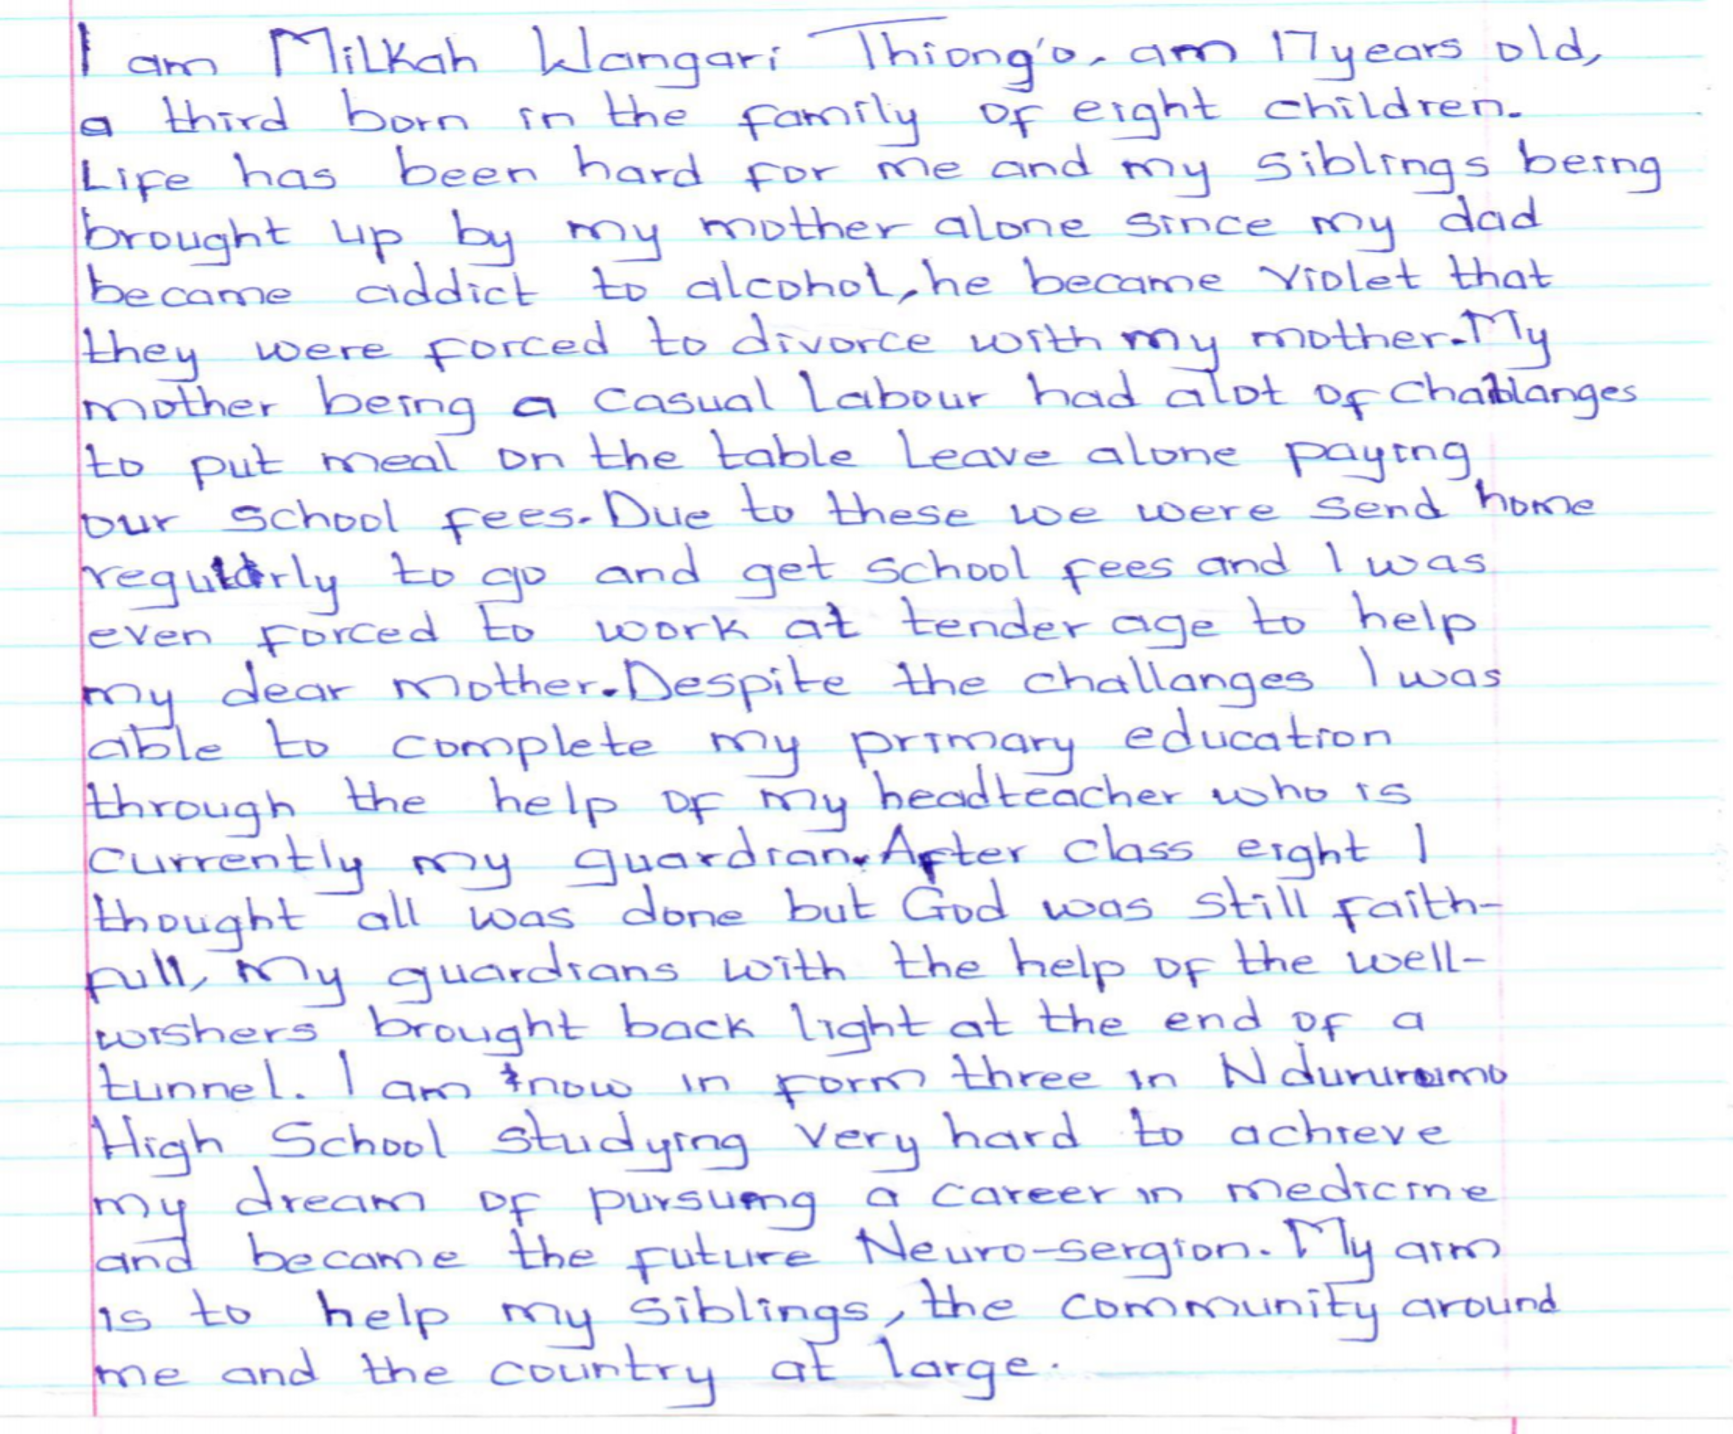 I am Milkah Wangari Thiong'o. am 17 years old,
a third born in the family of eight children.
Life has been hard for me and my siblings being
brought up by my mother alone since my dad
became addict to alcohol, he became violet that
they were forced to divorce with my mother. My
mother being a casual labour had alot of challanges
to put meal on the table leave alone paying
our school fees. Due to these we were send home
regularly to go and get school fees and I was
even forced to work at tender age to help
my dear mother. Despite the challanges I was
able to complete my primary education
through the help of my headteacher who is
currently my guardian. After class eight I
thought all was done but God was still faith-
full, my guardians with the help of the well-
wishers brought back light at the end of a
tunnel. I am now in form three in Ndururumo
High School studying very hard to achieve
my dream of pursuing a career in medicine
and became the future Neuro-sergion. My aim
is to help my siblings, the community around
me and the country at large.